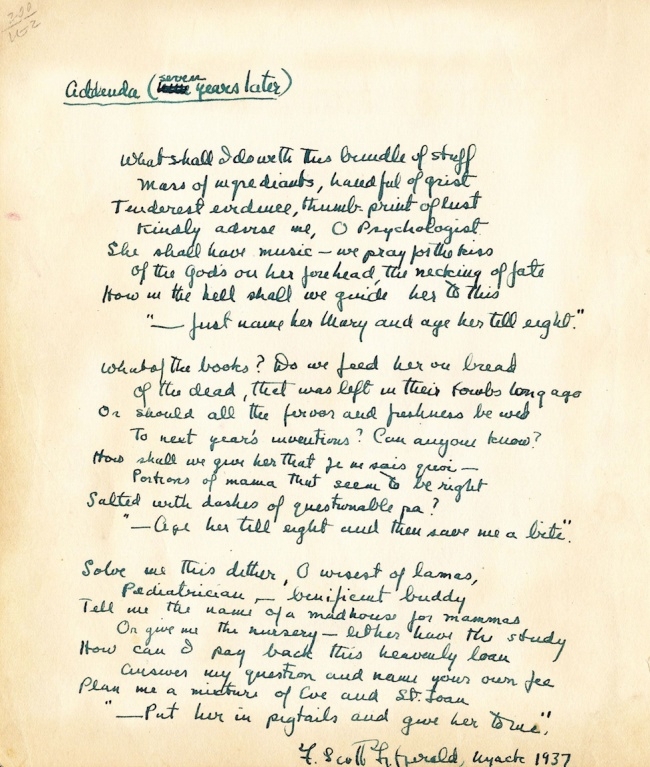 Addenda (seven years later)
What shall I do with this bundle of stuff
Mass of ingrediants, handful of grist
Tenderest evidence, thumb-print of lust
Kindly advise me, O Psychologist
She shall have music — we pray for the kiss
Of the God's on her forehead, the necking of fate
How in the hell shall we guide her to this
"— Just name her Mary and age her tell eight."
What of the books? Do we feed her on bread
Of the dead, that was left in their tombs long ago
Or should all the fervor and freshness be wed
To next year's inventions? Can anyone know?
How shall we give her that je ne sais quoi —
Portions of mama that seem to be right
Salted with dashes of questionable pa?
"— Age her till eight and then save me a bite".
Solve me this dither, O wisest of lamas,
Pediatrician — benificent buddy
Tell me the name of a madhouse for mammas
Or give me the nursery — let her have the study
How can I pay back this heavenly loan
Answer my question and name your own fee
Plan me a mixture of Eve and St. Joan
"— Put her in pigtails and give her to me".
F. Scott Fitzgerald, Nyack 1937